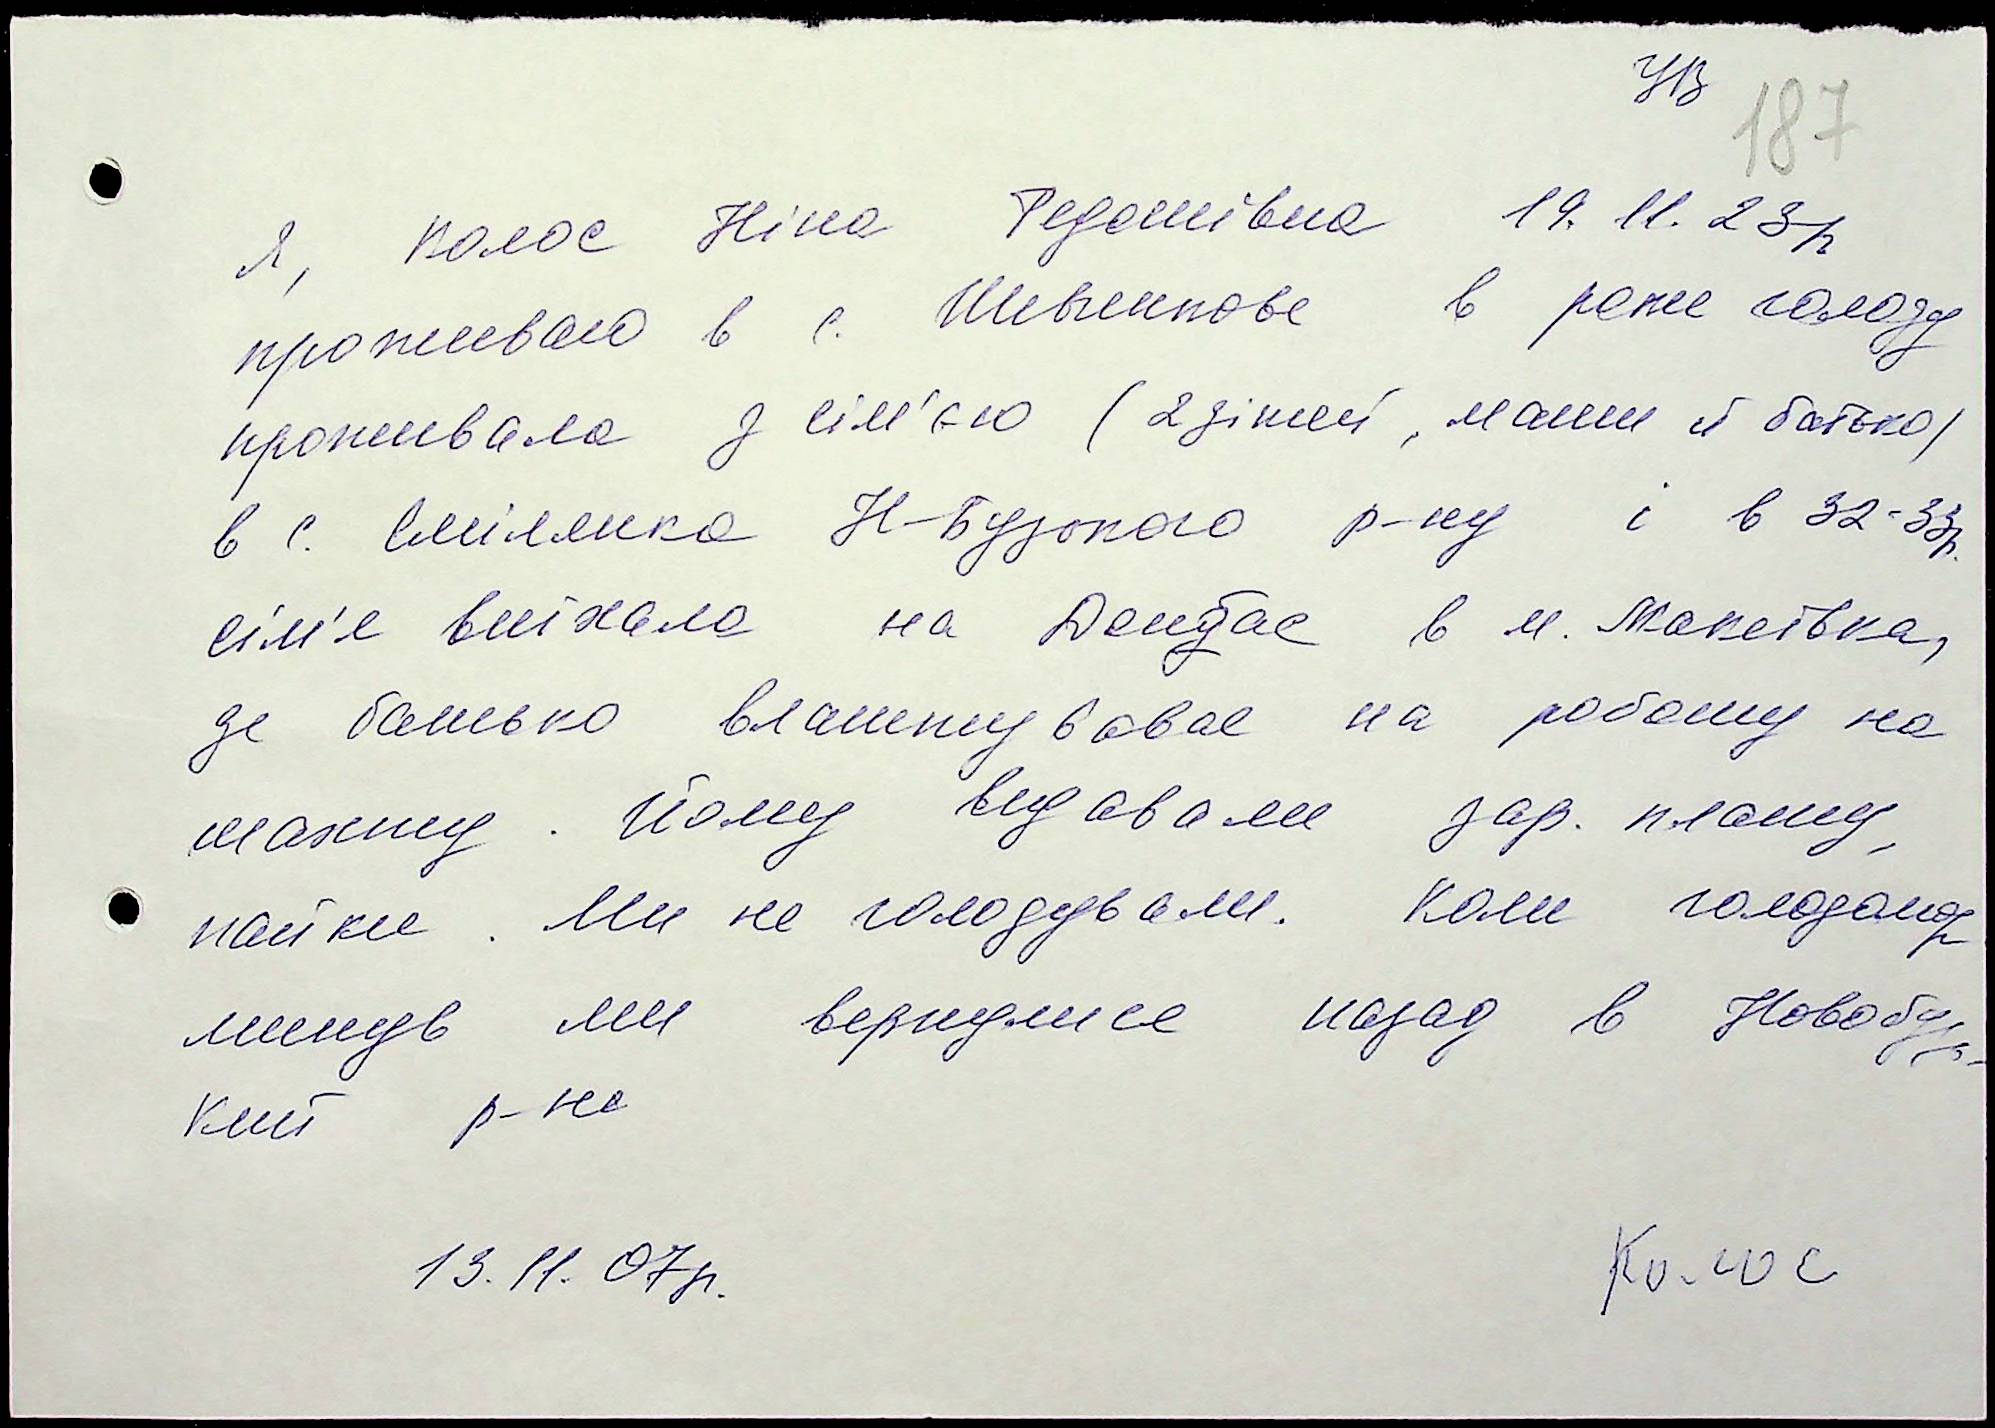 УВ
187
Я, Колос Ніна Федотівна 19.11.23р
проживаю в с. Шевченкове в роки голоду
проживала з сім'єю (2 дітей, мати й батько)
в с. Сміливка Н-Бузького р-ну і в 32-33р.
сім'я виїхала на Донбас в м. Макеївка,
де батько влаштувався на роботу на
шахту. Йому видавали зар. плату,
пайки. Ми не голодували. Коли голодомор
минув ми вернулися назад в Новобузь-
кий р-не
13.11.07р.
Колос